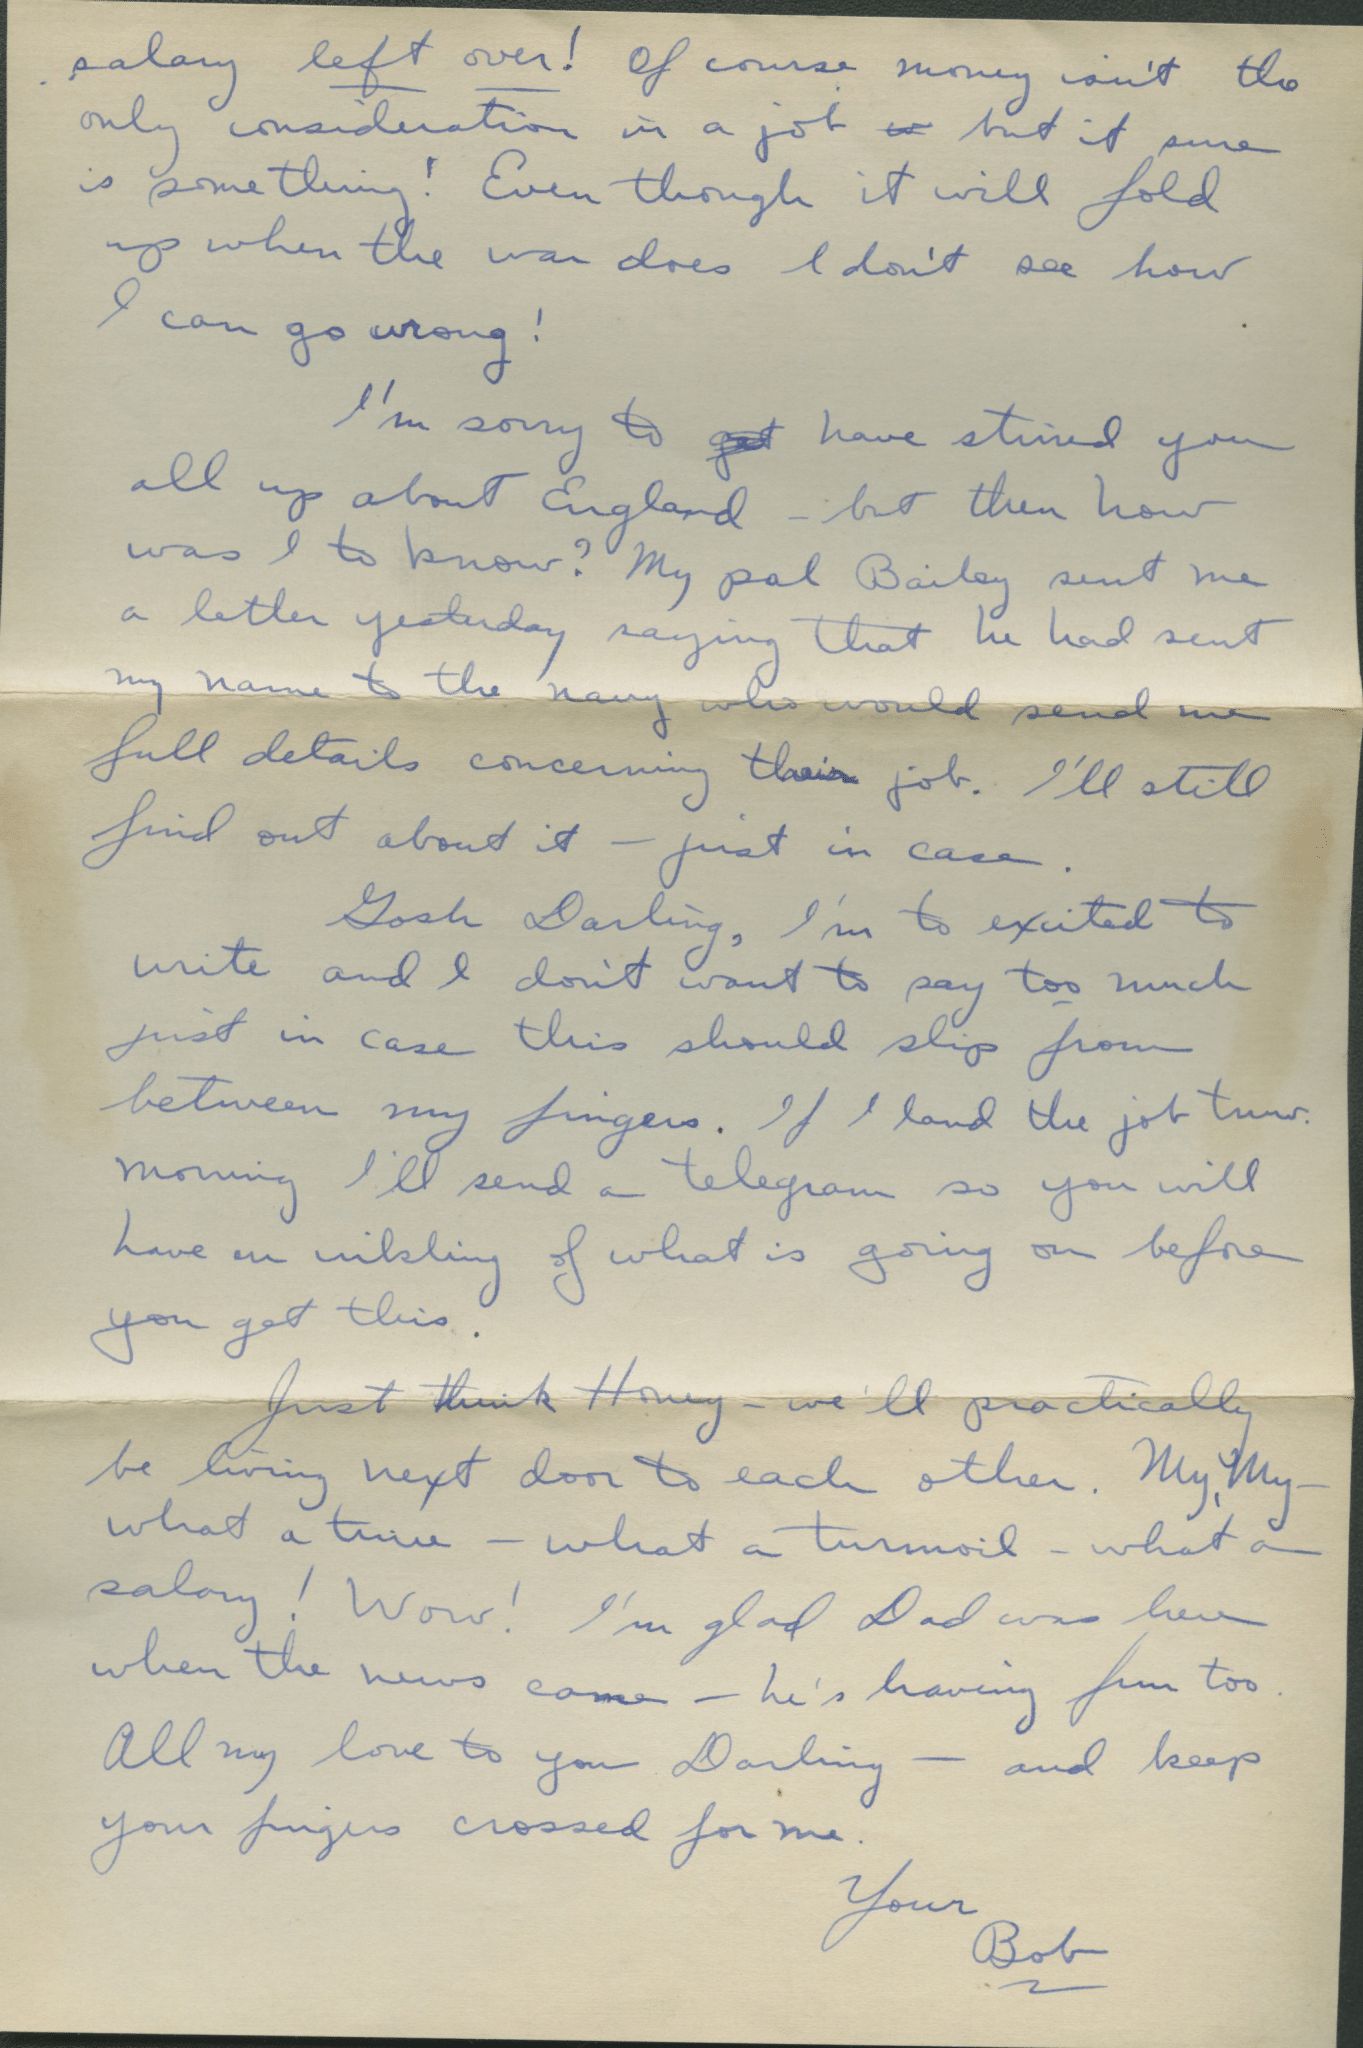 salary left over! Of course money isn't the
only consideration in a job but it sure
is something! Even though it will fold
up when the war does I don't see how
I can go wrong!
I'm sorry to have stired you
all up about England - but then how
was I to know? My pal Bailey sent me
a letter yesterday saying that he had sent
my name to the navy who would send me
full details concerning their job. I'll still
find out about it - just in case.
Gosh Darling, I'm to excited to
write and I don't want to say too much
just in case this should slip from
between my fingers. If I land the job tmw.
morning I'll send a telegram so you will
have an inkling of what is going on before
you get this.
Just think Honey - we'll practically
be living next door to each other. My, My -
what a time - what a turmoil - what a
salary! Wow! I'm glad Dad was here
when the news came - he's having fun too.
All my love to you Darling - and keep
your fingers crossed for me.
Your
Bob